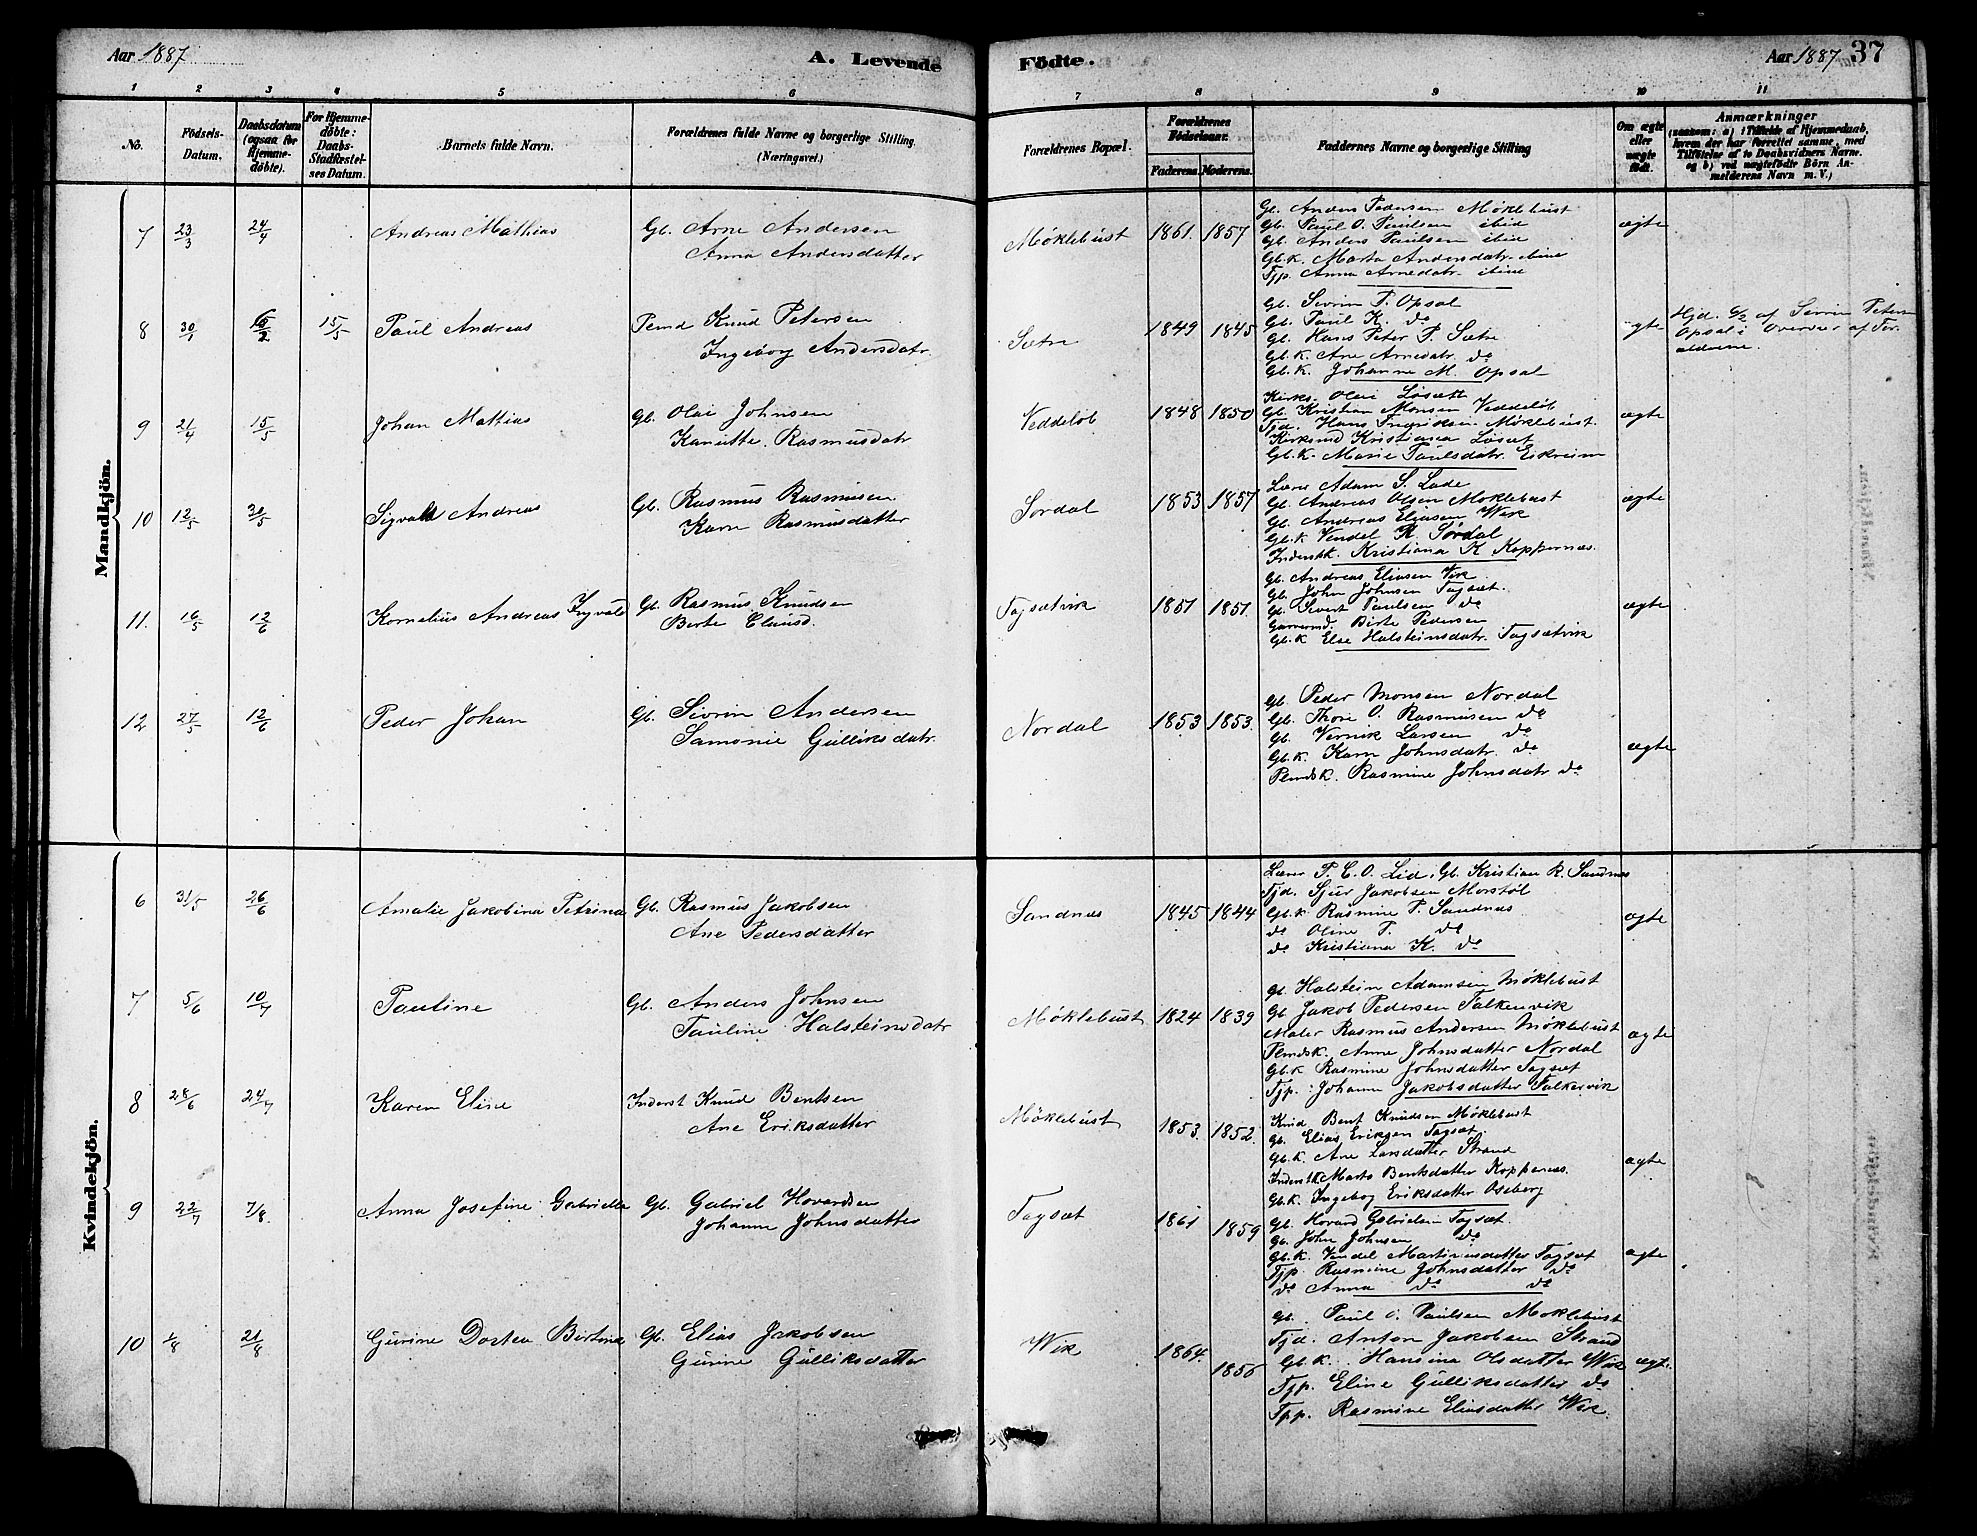 Aar 1887 A. Levende Födte. Aar 1887 37
1 2 3 4 5 6 7 8 9 10 11
No.
Födsels-
Datum.
Daabsdatum
(ogsaa for
Hjemme-
döbte).
For Hjemme-
döbte:
Daabs-
Stadfæstel-
ses Datum.
Barnets fulde Navn.
Forældrenes fulde Navne og borgerlige Stilling.
(Næringsvei.)
Forældrenes Bopæl.
Forældrenes
Födselsaar.
Faderens. Moderens.
Faddernes Navne og borgerlige Stilling
Om ægte
eller
uægte
födt.
Anmærkninger
(saasom: a) i Tilfælde af Hjemmedaab,
hvem der har forrettet samme, med
Tilföielse af to Daabsvidners Navne.
og b) ved uægtefödte Börn An-
melderens Navn m. V.)
Mandkjön.
7 23/3 24/4 Andreas Mathias
Gb. Arne Andersen
Anna Andersdatter
Møklebust 1861. 1857
Gb. Anders Pedersen Møklebust
Gb. Paul O. Paulsen ibid
Gb. Anders Paulsen ibid
Gb.k. Marta Andersdatr. ibid
Tjp. Anna Arnedatr. ibid
ægte
8 30/1 15/5 Paul Andreas
Pemd Knud Petersen
Ingeborg Andersdatr.
Sætre 1849 1845
Gb. Sivrin P. Opsal
Gb. Paul K. do
Gb. Hans Peter P. Sætre
Gb.k. Ane Arnedatr. do
Gb.k. Johanne M. Opsal
ægte
Hjd. af Sivrin Peters
Opsal i Overvær af For
ældrene.
9 21/4 15/5 Johan Mattias
Gb. Olai Johnsen
Kanutte Rasmusdatr
Veddeløb 1848 1850
Kirks. Olai Løsætt
Gb. Kristian Monsen Veddeløb
Tjd. Hans Møklebust.
Kristiana Løset
Gb.k. Marie Paulsdatr. Eikreim
ægte
10 12/5 30/5 Sigvald Andreas
Gb. Rasmus Rasmusen
Karn Rasmusdatter
Sørdal 1853 1857
Lærer Adam S. Lade
Gb. Andreas Olsen Møklebust
Gb. Andreas Eliasen Wik
Gb.k Vendel R. Sørdal
Inderstk. Kristiana K Koppernæs.
ægte
11. 16/5 12/6 Kornelius Andreas Ingvald
Gb. Rasmus Knudsen
Berte
Tagsætvik 1851 1851.
Gb. Andreas Eliasen Wik
Gb. John Johnsen Tagsæt.
Gb. Sivert Paulsen do
Birte Pedersen
Gb.k Else Halsteinsdatr. Tagsætvik
ægte
12 27/5 12/6 Peder Johan
Gb. Sivrin Andersen
Samonie Gulliksdatr.
Nordal 1853 1853.
Gb. Peder Monsen Nordal
Gb. Thore O. Rasmusen do
Gb. Vernik Larsen do
Gb.k. Karn Johnsdatr. do
Pemdsk. Rasmine Johnsdatr do
ægte
Kvindekjön.
6 31/5 26/6 Amalie Jakobina Petrina
Gb. Rasmus Jakobsen
Ane Pedersdatter
Sandnæs 1845 1844
Lærer P. E. O. Lid. Gb. Kristian R. Sandnæs
Tjd. Sjur Jakobsen Morstøl
Gb.k Rasmine P. Sandnæs
do Oline P. do
do Kristiana K. do
ægte
7 5/6 10/7 Pauline
Gb. Anders Johnsen
Pauline Halsteinsdatr
Møklebust 1824 1839
Gb. Halstein Adamsen Møklebust
Gb Jakob Pedersen Falkenvik
Maler Rasmus Andersen Møklebust
Pemdsk. Anne Johnsdatter Nordal
Gb.k Rasmine Johnsdatter Tagsæt
Tjp. Johanne Jakobsdatter Falkevik
ægte
8 28/6 24/7 Karen Elise
Inderst Knud Bentsen
Ane Eriksdatter
Møklebust 1853. 1852
Knud Bent Knudsen Møklebust
Gb. Elias Eriksen Tagsæt.
Gb.k. Ane Larsdatter Strand
Inderstk Marta Bentsdatter Koppernæs.
Gb.k. Ingebog Eriksdatter Oseberg
ægte
9 22/7 7/8. Anna Josefine Gabrielle
Gb. Gabriel Hovardsen
Johanne Johnsdatter
Tagsæt 1861 1859
Gb. Hovard Gabrielsen Tagsæt.
Gb. John Johnsen do
Gb.k. Vendel Martinusdatter Tagsæt
Tjp. Rasmine Johnsdatter do
do Anna do do
ægte
10 1/8 21/8 Gurine Dortea Bertine
Gb. Elias Jakobsen
Gurine Gulliksdatter
Wik 1864. 1856
Gb. Paul O. Paulsen Møklebust
Tjd. Anton Jakobsen Strand
Gb.k. Hansina Olsdatter Wik
Tjp. Eline Gulliksdatter do
Tjp. Rasmine Eliasdatter Wik.
ægte